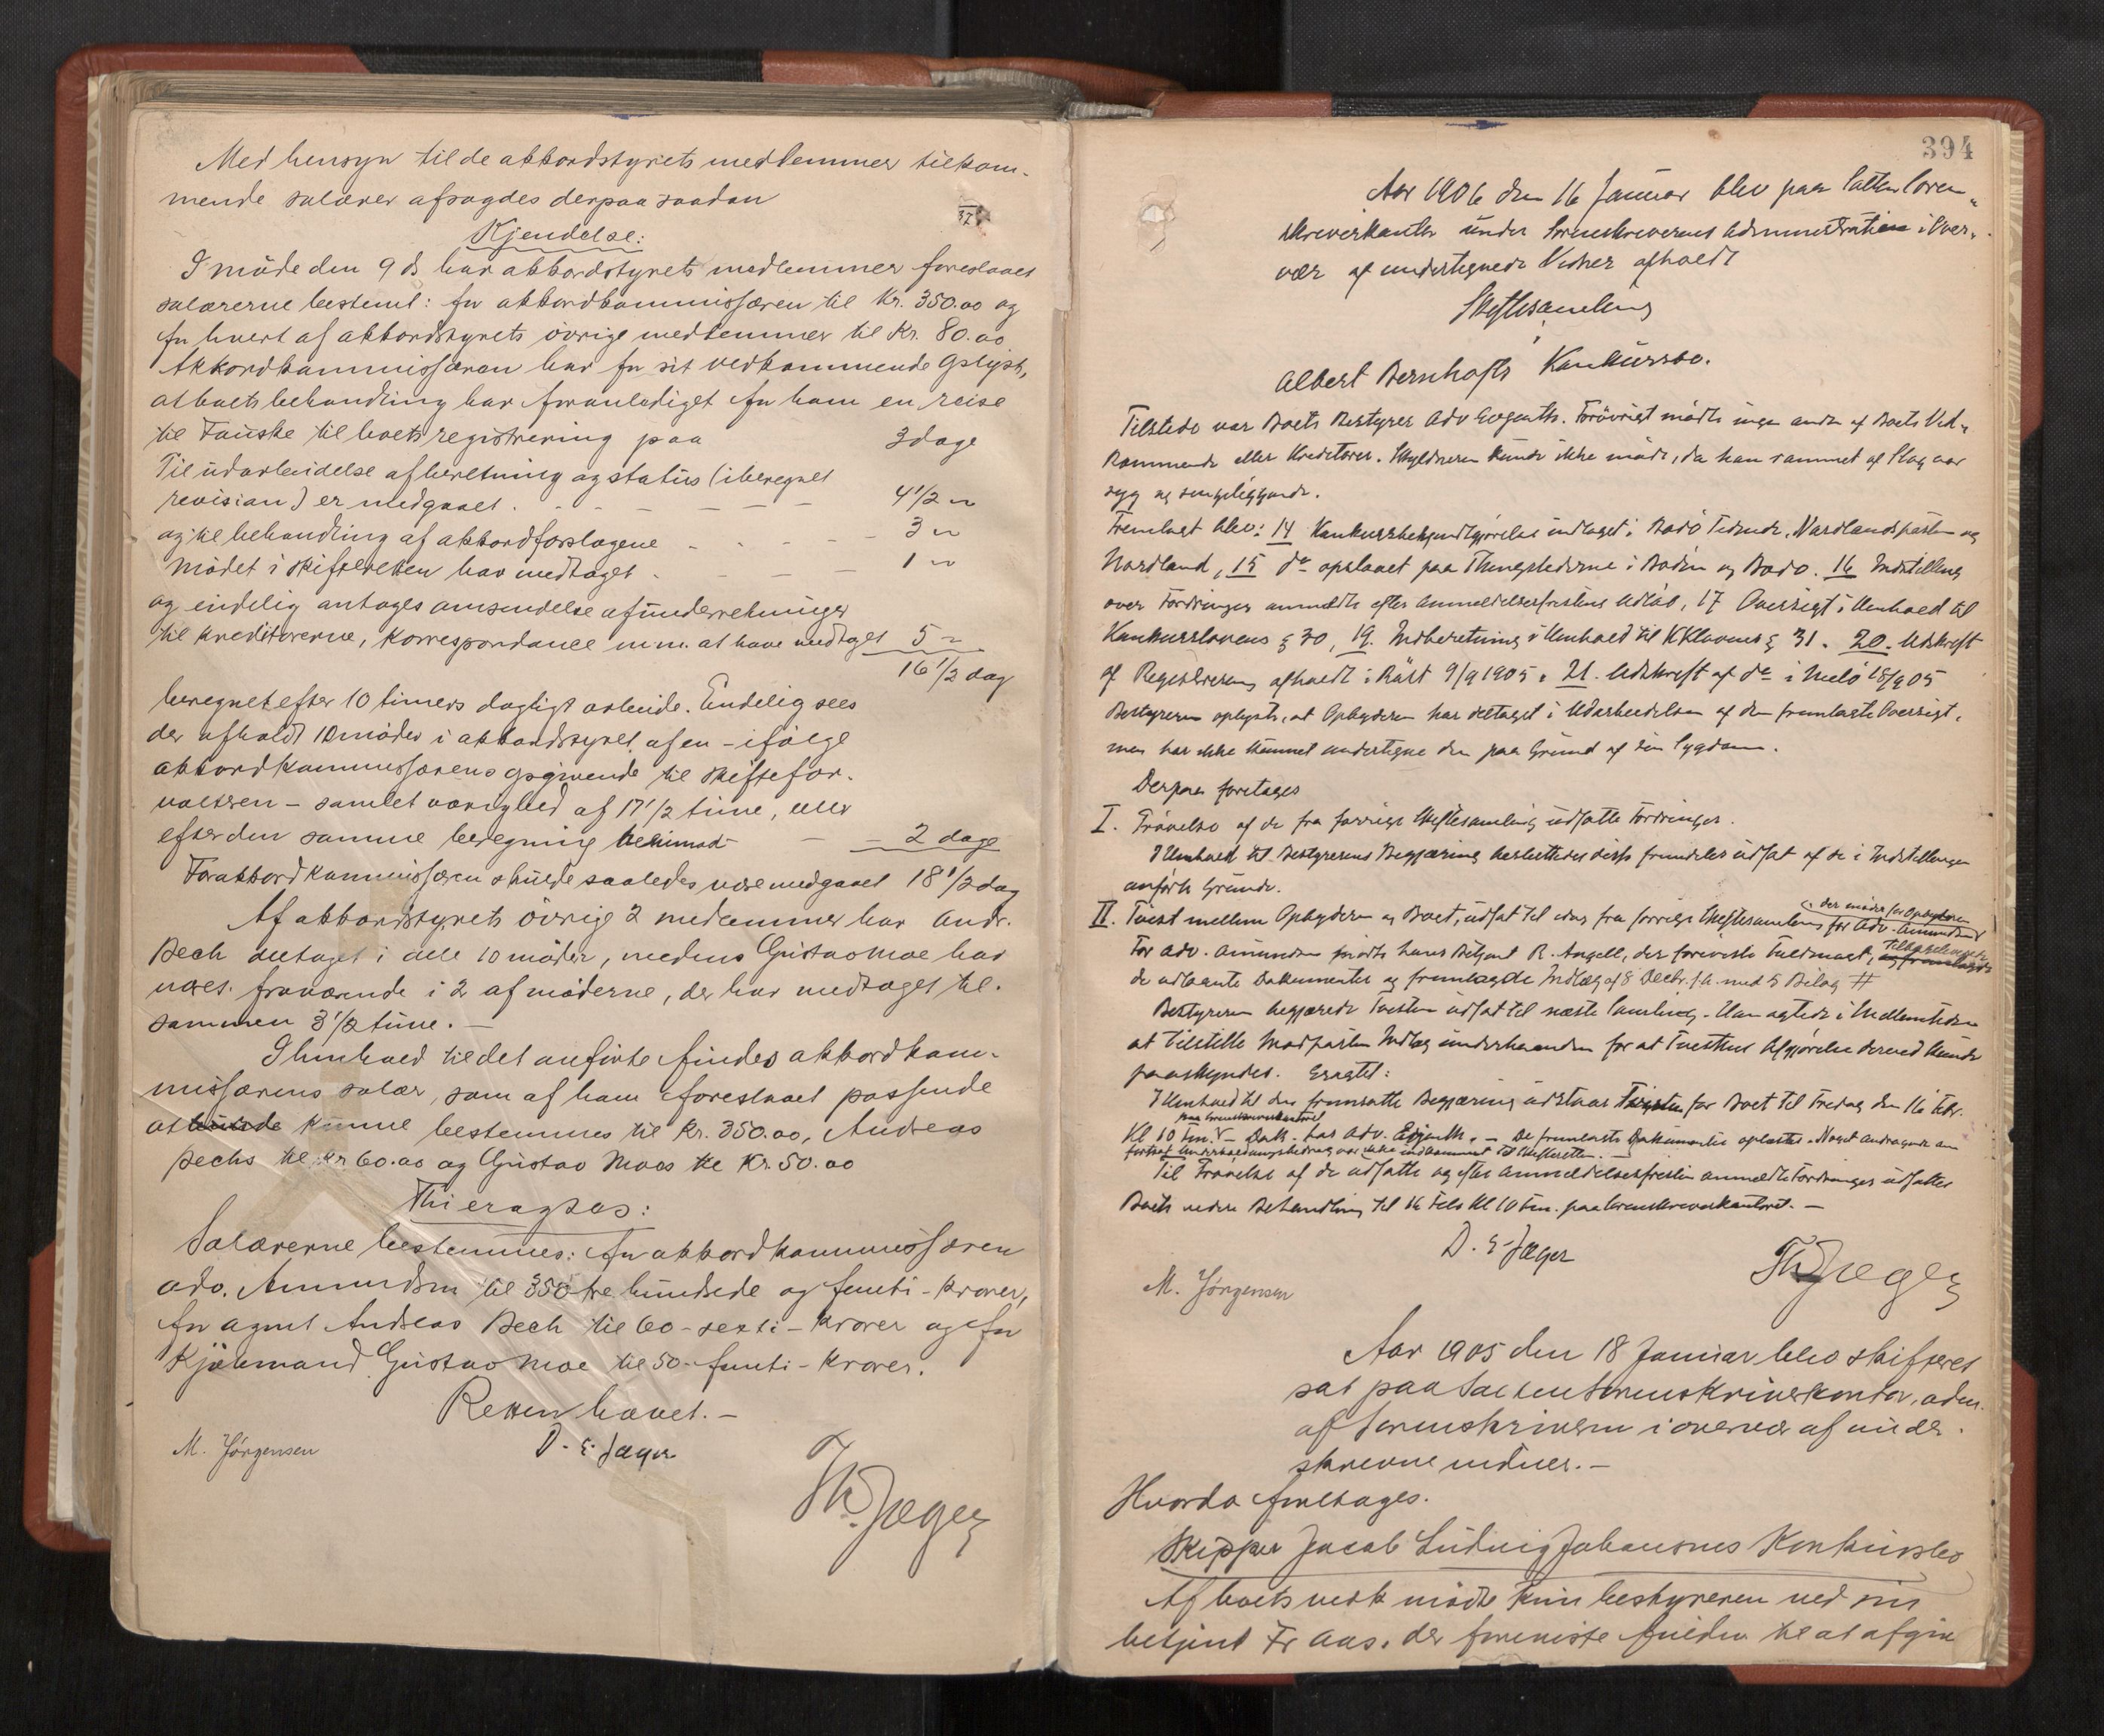 Med hensyn til de akkordstyrets medlemmer tilkom-
mende salærer afsagdes derpaa saadan
Kjendelse:
I møde den 9 ds har akkordstyrets medlemmer foreslaaet
salærerne bestemt: for akkordkommissæren til Kr. 350.00 og
for hvert af akkordstyrets øvrige medlemmer til Kr. 80.00
Akkordkommissæren har for sit vedkommende oplyst,
at boets behandling har foranlediget for ham en reise
til Fauske til boets registrering paa 3 dage
Til udarbeidelse af beretning og status (iberegnet
revision) er medgaaet . - - - - - 4 1/2 "
og til behandling af akkordforslagene - - - - 3 "
Mødet i skifteretten har medtaget - - - - 1 "
og endelig antages omsendelse af underretninger
til kreditorerne, korrespondance m.m. at have medtaget 5 "
16 1/2 dag
beregnet efter 10 timers dagligt arbeide. Endelig sees
der afholdt 10 møder i akkordstyret af en - ifølge
akkordkommissærens opgivende til skiftefor-
valteren - samlet varighed af 17 1/2 time, eller
efter den samme beregning - - 2 dage
For akkordkommissæren skulde saaledes være medgaaet 18 1/2 dag
Af akkordstyrets øvrige 2 medlemmer har Andr.
Bech deltaget i alle 10 møder, medens Gustav Moe har
været fraværende i 2 af møderne, der har medtaget til-
sammen 3 1/2 time. -
I henhold til det anførte findes akkordkom-
missærens salær, som af ham foreslaaet passende
at kunne bestemmes til Kr. 350.00, Andreas
Bechs til Kr 60.00 og Gustav Moes til Kr. 50.00
Thi eragtes:
Salærerne bestemmes: for akkordkommissæren
adv. Amundsen til 350 tre hundrede og femti - kroner,
for agent Andreas Bech til 60 - sexti - kroner og for
Kjøbmand Gustav Moe til 50 - femti - kroner.
Retten hævet. -
M. Jørgensen
D. E. Jæger
Th. Jæger
394
Aar 1906 den 16 Januar blev paa Salten Soren-
skriverkontor under Sorenskriverens Administration i Over-
vær af undertegnede Vidner afholdt
Skiftesamling
i
Albert Bernhofts Konkursbo.
Tilstede var Boets Bestyrer Adv Evjenth. Forøvrigt mødte ingen andre af Boets Ved-
kommende eller Kreditorer. Skyldneren kunde ikke møde, da han rammet af Slag var
syg og sengeliggende.
Fremlagt blev: 14 Konkursbekjendtgjørelse indtaget i Bodø Tidende, Nordlandsposten og
Nordland, 15 do opslaaet paa Thingstederne i Bodin og Bodø. 16 Indstilling
over Fordringer anmeldte efter Anmeldelsesfristens Udløb, 17 Oversigt i Henhold til
Konkurslovens § 30, 19. Indberetning i Henhold til KKlovens § 31. 20. Udskrift
af Registrering afholdt i Røst 9/9 1905. 21. Udskrift af do i Melø 18/9 05
Bestyreren oplyste, at Opbyderen har deltaget i Udarbeidelsen af den fremlagte Oversigt,
men har ikke kunnet undertegne den paa Grund af sin Sygdom.
Derpaa foretages
I. Prøvelse af de fra forrige Skiftesamling udsatte Fordringer.
I Henhold til Bestyrerens Begjæring besluttedes disse fremdeles udsat af de i Indstillingen
anførte Grunde.
II. Tvist mellem Opbyderen og Boet, udsat til idag fra forrige Skiftesamling for Adv. Amundsen der møder for Opbyderen
For Adv. Amundsen mødte hans Betjent R. Angell, der foreviste Fuldmagt, Tilbageleverede
de udlaante Dokumenter og fremlagde Indlæg af 8 Decbr. f.A. med 5 Bilag #
Bestyreren begjærede Tvisten udsat til næste Samling. Han agtede i Mellemtiden
at tilstille Modparten Indlæg underhaanden for at Tvistens Afgjørelse derved kunde
paaskyndes. Eragtet:
I Henhold til den fremsatte Begjæring udstaar Tvisten for Boet til Fredag den 16 Febr.
Kl 10 Fm. paa Sorenskriverkontoret - Dok. har Adv. Evjenth. - De fremlagte Dokumenter oplæstes. Noget Andragende om
fortsat Underholdningsbidrag var ikke indkommet til Skifteretten. -
Til Prøvelse af de udsatte og efter Anmeldelsesfristen anmeldte Fordringer udsattes
Boets videre Behandling til 16 Feb Kl 10 Fm. paa Sorenskriverkontoret. -
D. E. Jæger
M. Jørgensen
Th Jæger
Aar 1905 den 18 Januar blev skifteret
sat paa Salten Sorenskriverkontor, adm.
af Sorenskriveren i overvær af under-
skrevne vidner. -
Hvorda foretages.
Skipper Jacob Ludvig Johansens Konkursbo
Af boets vedk mødte kun bestyreren ved sin
betjent Fr Aas, der foreviste fuldm til at afgive